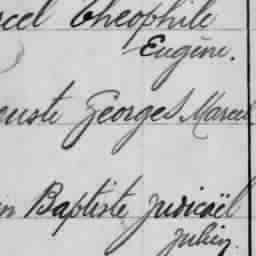 cel Théophile
Eugène.
guste Georges Marcel
n Baptiste Judicaël
Julien